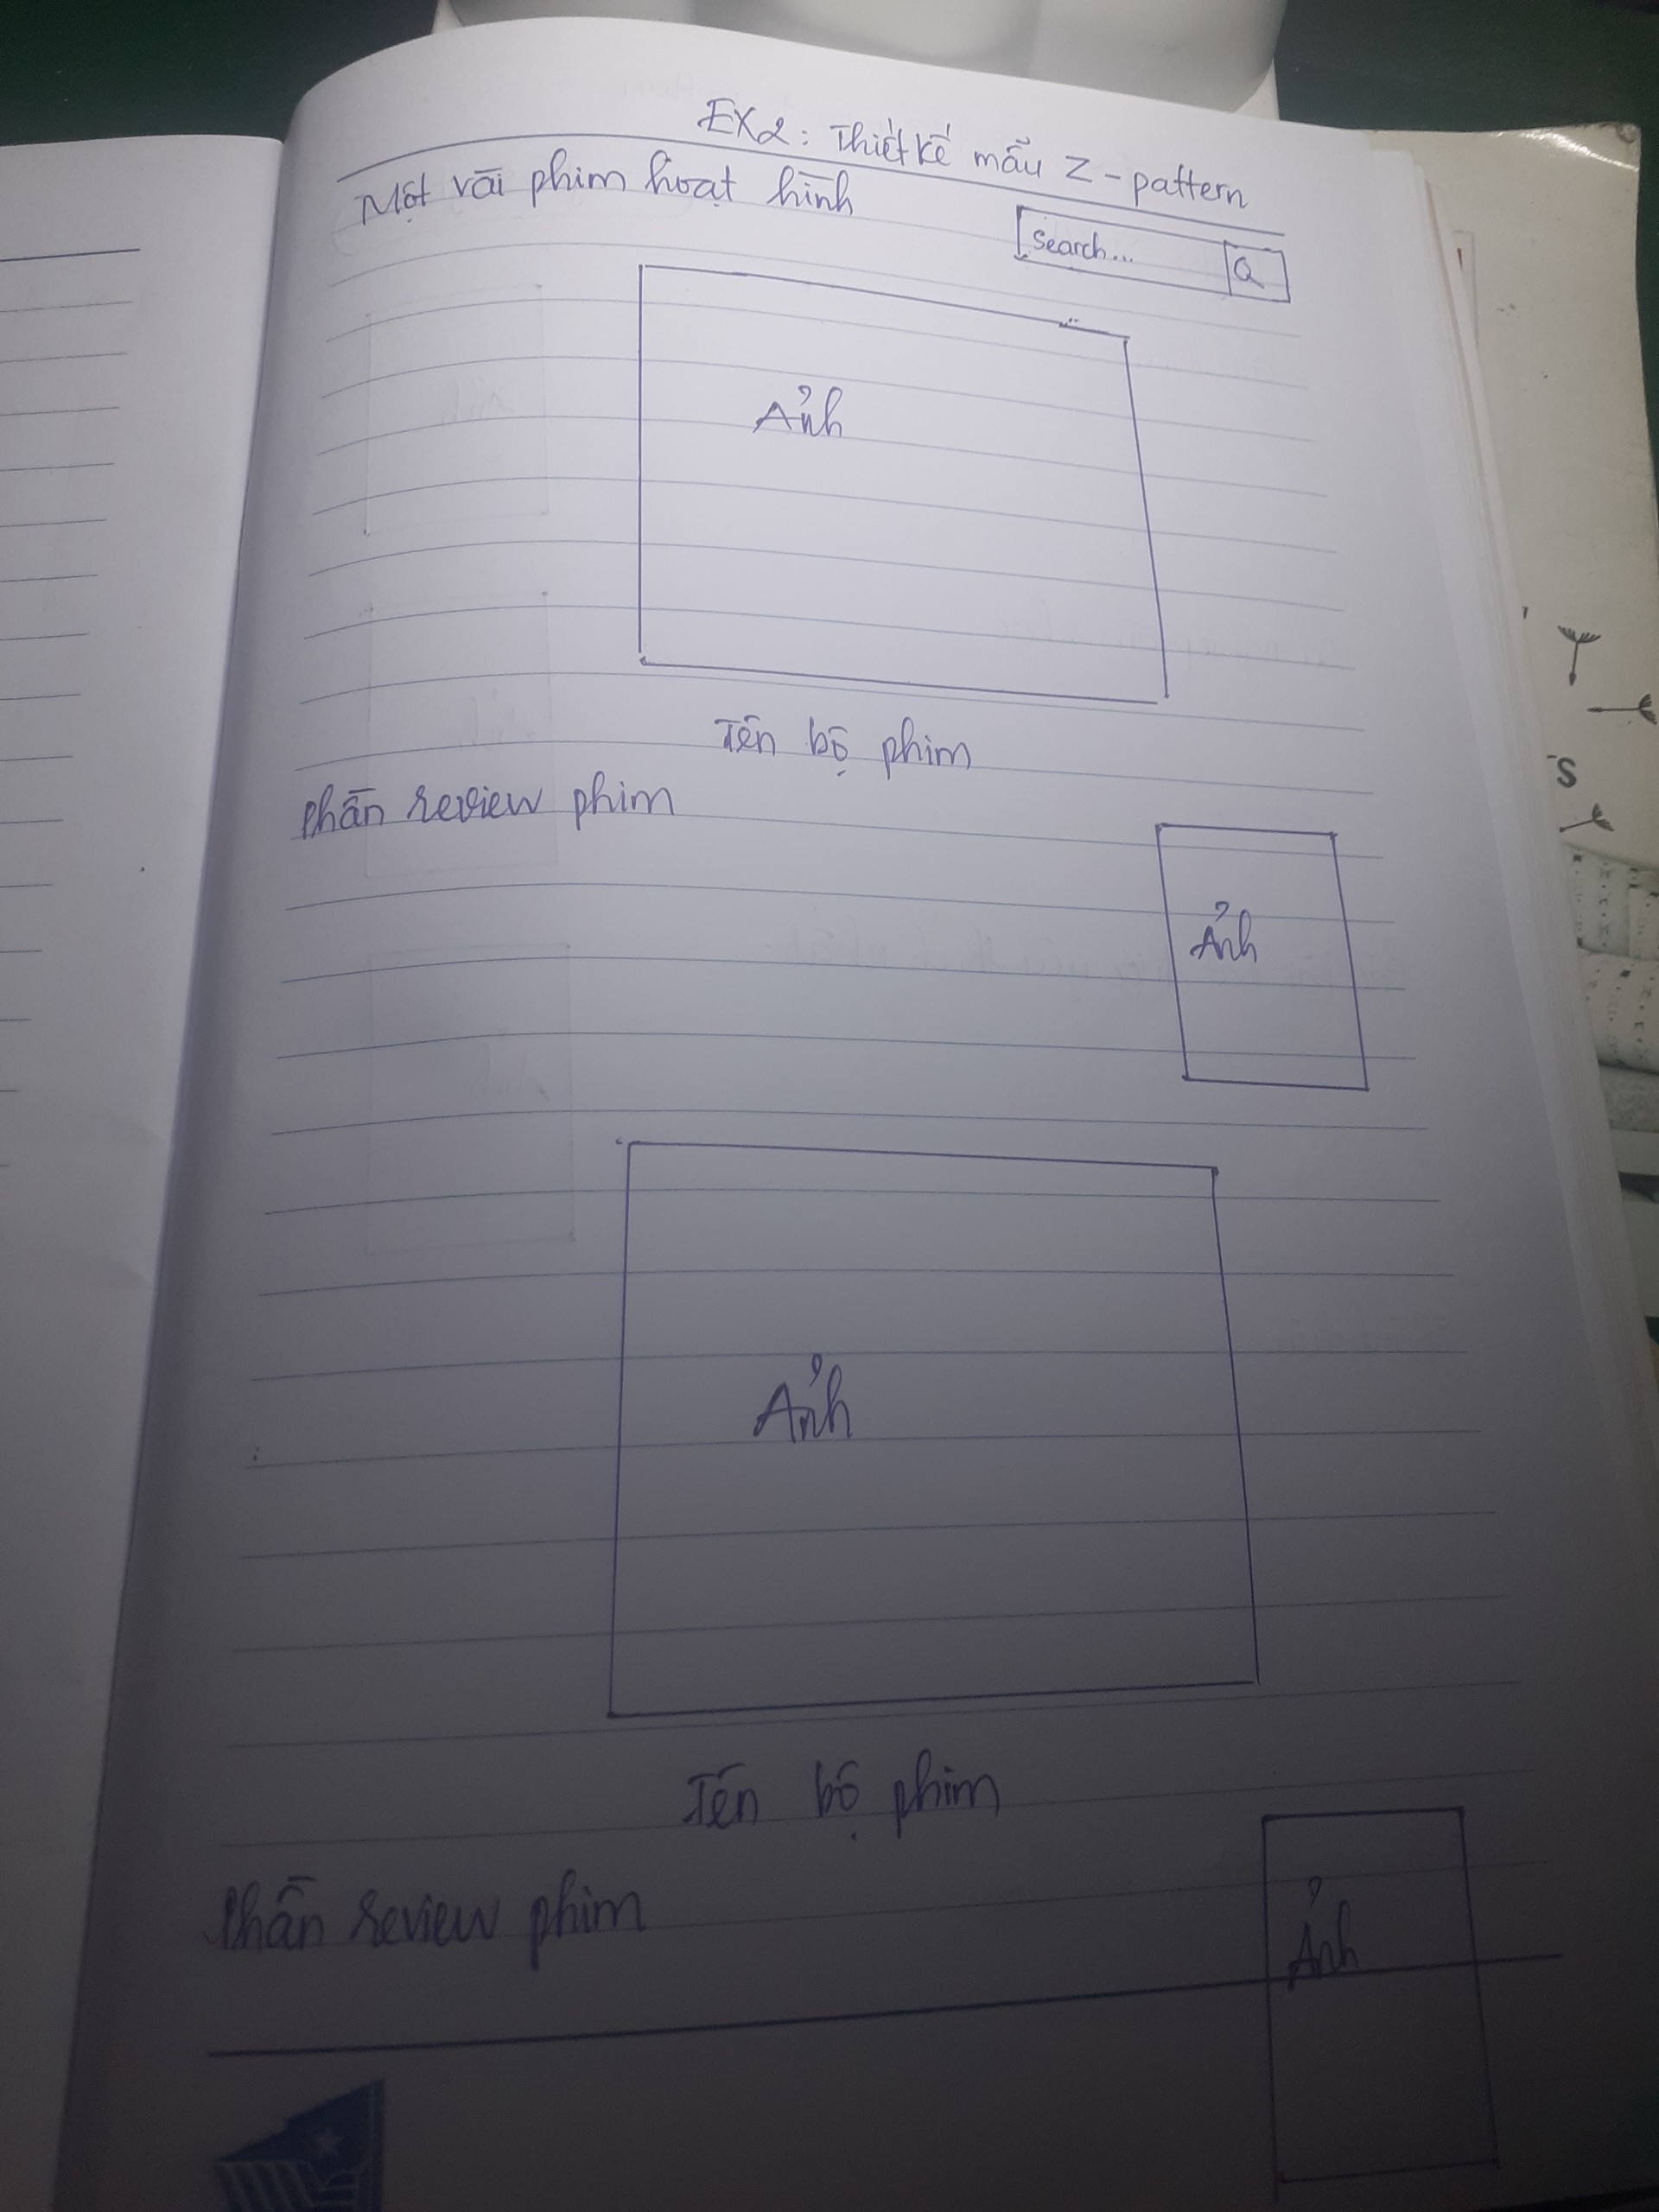 EX2: Thiết kế mẫu Z-pattern
Một vài phim hoạt hình
Search...
Ảnh
Tên bộ phim
Phần review phim
Ảnh
Ảnh
Tên bộ phim
Phần review phim
Ảnh
S